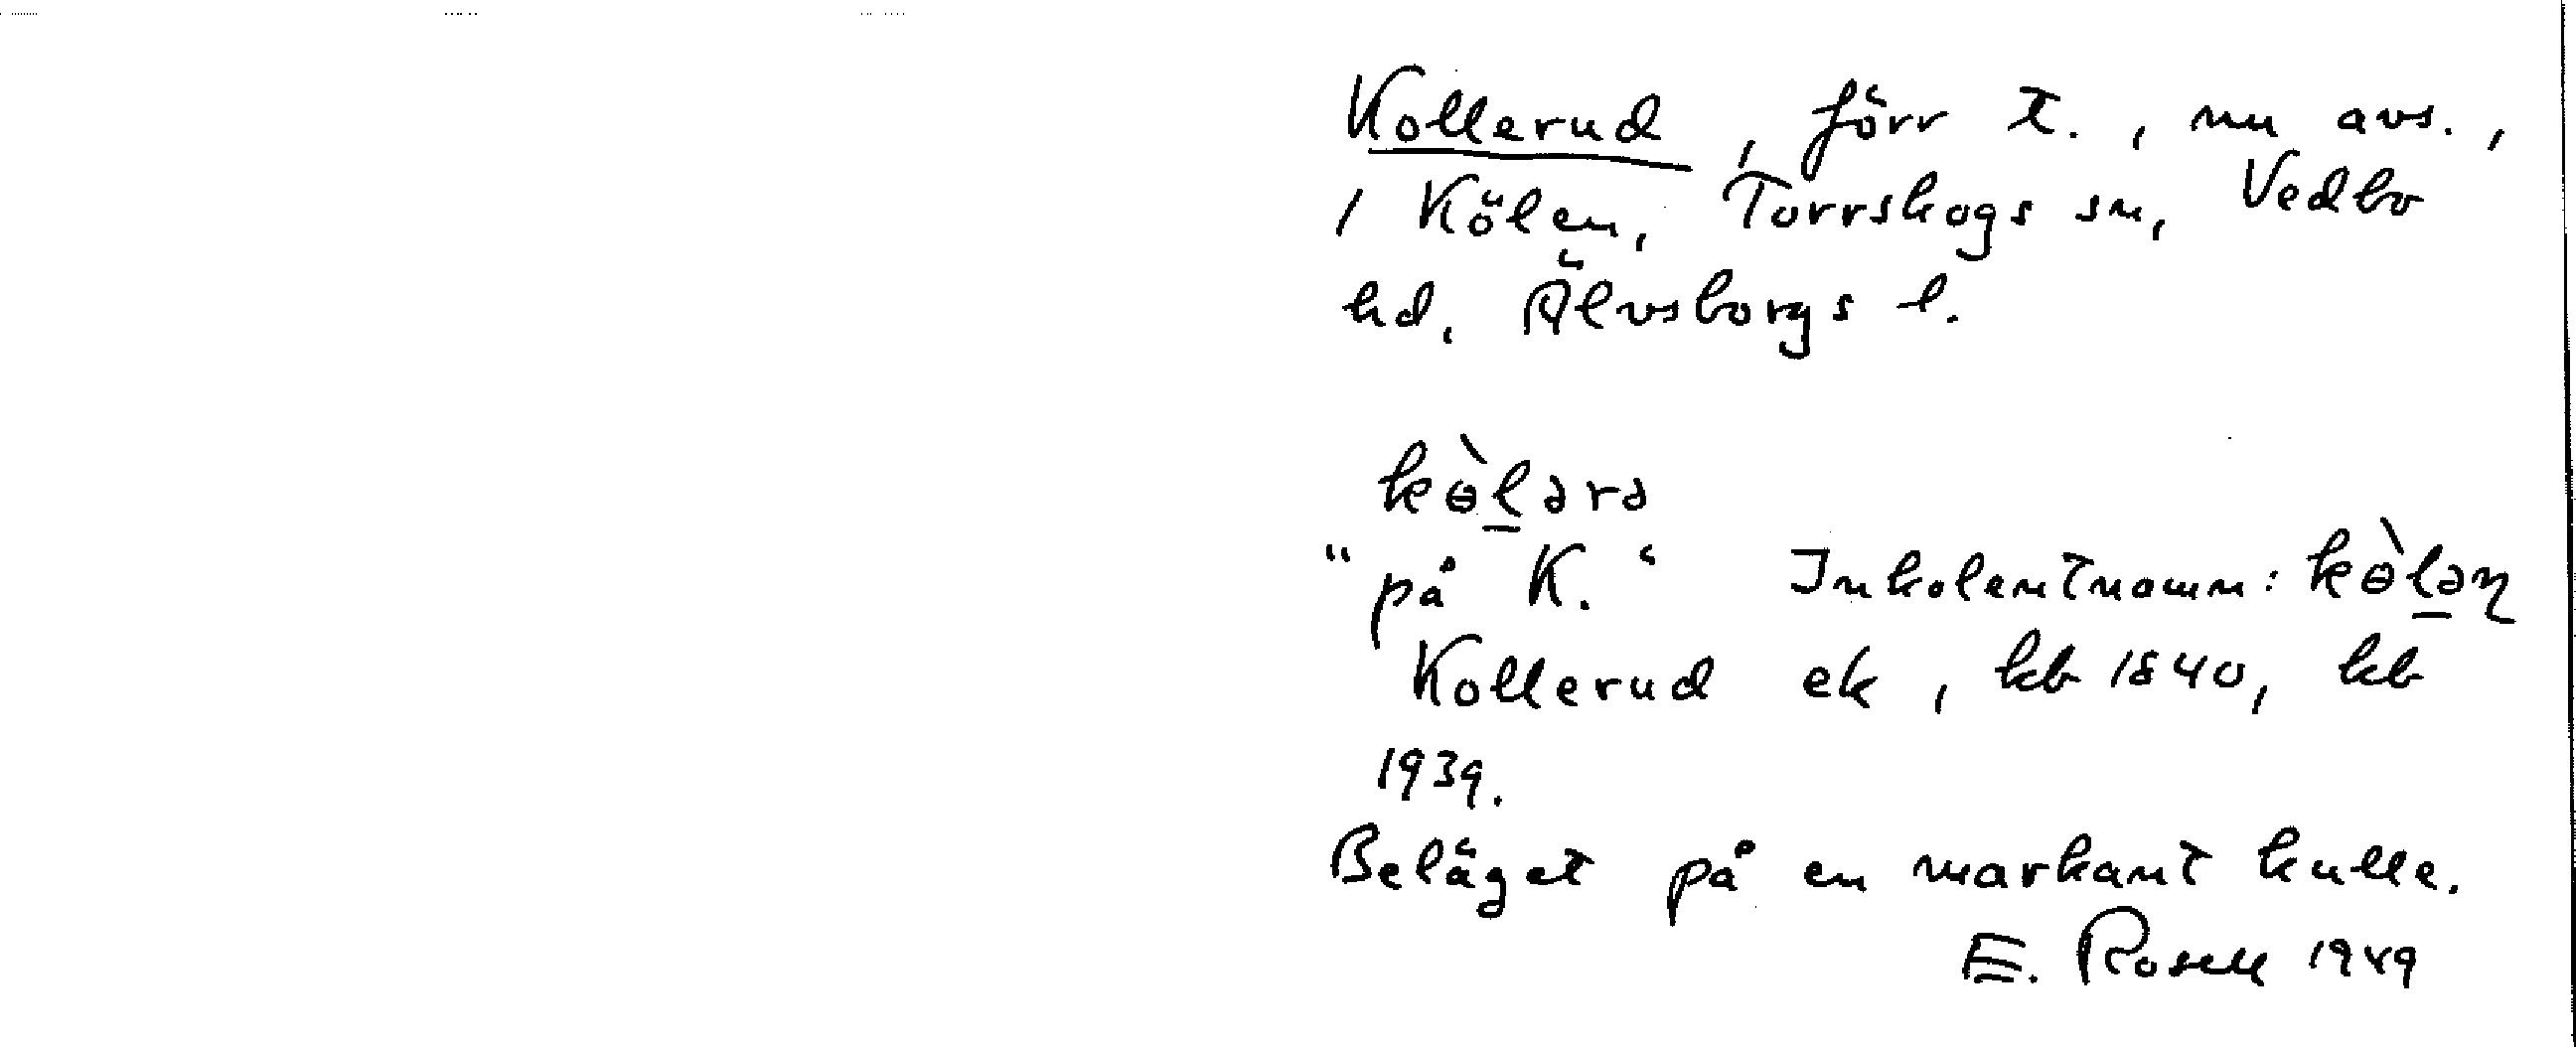 Kollerud, förr t., nu avs.,
/ Kölen, Torrskogs sn, Vedbo
hd, Älvsborgs l.
kɵ̀l̲ərə
"på K." Inkolentnamn: kɵ̀l̲əɳ
Kollerud ek, kb 1840, kb
1939.
Beläget på en markant kulle.
E. Rosell 1949